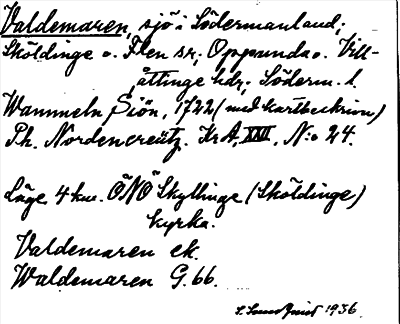 Valdemaren, sjö i Södermanland;
Sköldinge o. Flen sr; Oppunda o. Vill-
åttinge hdr; Söderm. l.
Wammeln Siön, 1722 (med kartbeskrivn)
Ph. Nordencreütz. KrA, XXII, N:o 24.
Läge 4 km. ÖNÖ Skyllinge (Sköldinge)
kyrka.
Valdemaren ek.
Waldemaren G. 66.
1936